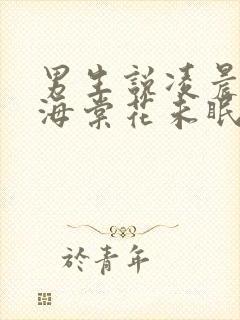 男生說凌晨
海棠花未眠
於青年